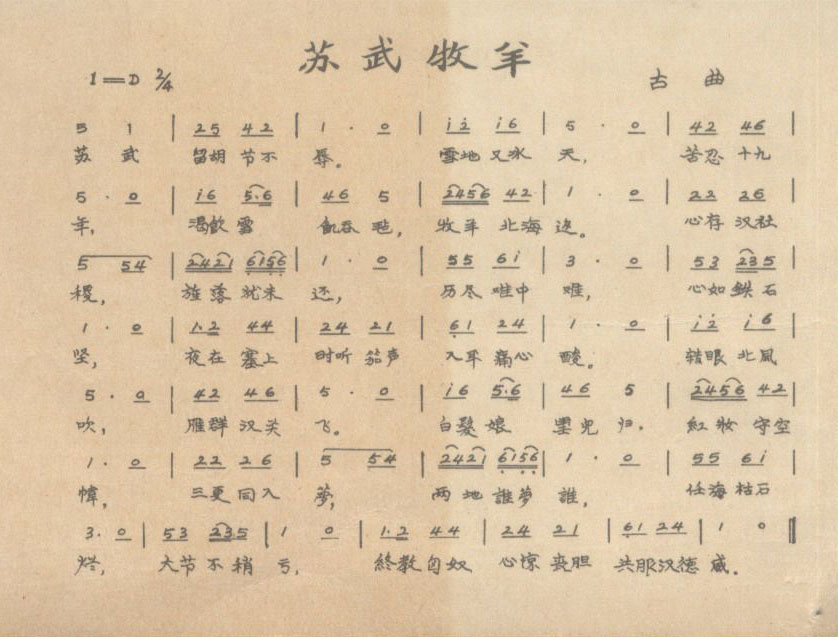 苏武牧羊
1=D 2/4 古曲
5 1 | 25 42 | 1 · 0 | i2 i6 | 5 · 0 | 42 46 |
苏 武 留胡 节不 辱。 雪地 又冰 天, 苦忍 十九
5 · 0 | i6 5·6 | 46 5 | 2456 42 | 1 · 0 | 22 26 |
年, 渴飲 雪 飢吞 毡, 牧羊 北海 边。 心存 汉社
5 54 | 2421 6156 | 1 · 0 | 55 6i | 3 · 0 | 53 235 |
稷, 旌落 犹未 还, 历尽 难中 难, 心如 鉄石
1 · 0 | 1·2 44 | 24 21 | 61 24 | 1 · 0 | i2 i6 |
坚, 夜在 塞上 时听 笳声 入耳 痛心 酸。 转眼 北風
5 · 0 | 42 46 | 5 · 0 | i6 5·6 | 46 5 | 2456 42 |
吹, 雁群 汉关 飞。 白髮 娘 望儿 归, 紅妆 守空
1 · 0 | 22 26 | 5 54 | 2421 6156 | 1 · 0 | 55 6i |
幃, 三更 同入 夢, 两地 誰夢 誰, 任海 枯石
3 · 0 | 53 235 | 1 0 | 1·2 44 | 24 21 | 61 24 | 1 0 ‖
烂, 大节 不稍 亏, 終教 匈奴 心惊 丧胆 共服 汉德 威.